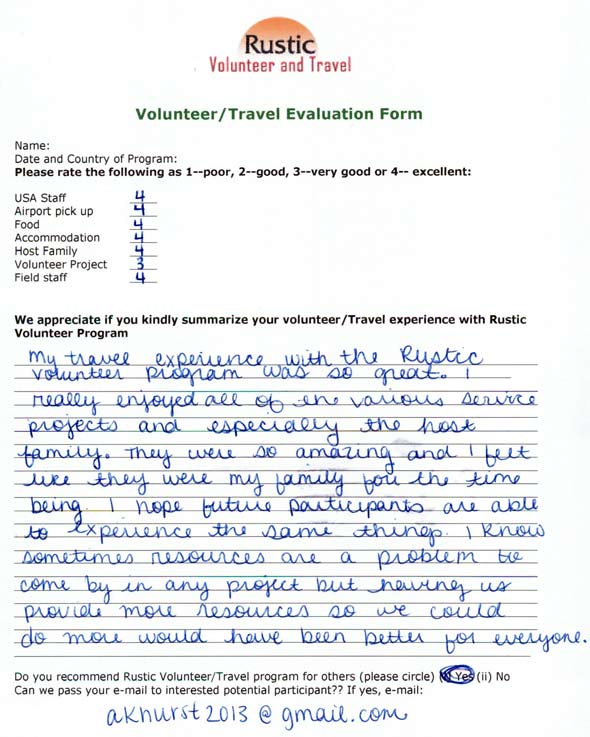 Rustic
Volunteer and Travel
Volunteer/Travel Evaluation Form
Name:
Date and Country of Program:
Please rate the following as 1--poor, 2--good, 3--very good or 4-- excellent:
USA Staff 4
Airport pick up 4
Food 4
Accommodation 4
Host Family 4
Volunteer Project 3
Field staff 4
We appreciate if you kindly summarize your volunteer/Travel experience with Rustic
Volunteer Program
My travel experience with the Rustic
volunteer program was so great. I
really enjoyed all of the various service
projects and especially the host
family. They were so amazing and I felt
like they were my family for the time
being. I hope future participants are able
to experience the same things. I know
sometimes resources are a problem to
come by in any project but having us
provide more resources so we could
do more would have been better for everyone.
Do you recommend Rustic Volunteer/Travel program for others (please circle) Yes (ii) No
Can we pass your e-mail to interested potential participant?? If yes, e-mail:
akhurst2013@gmail.com